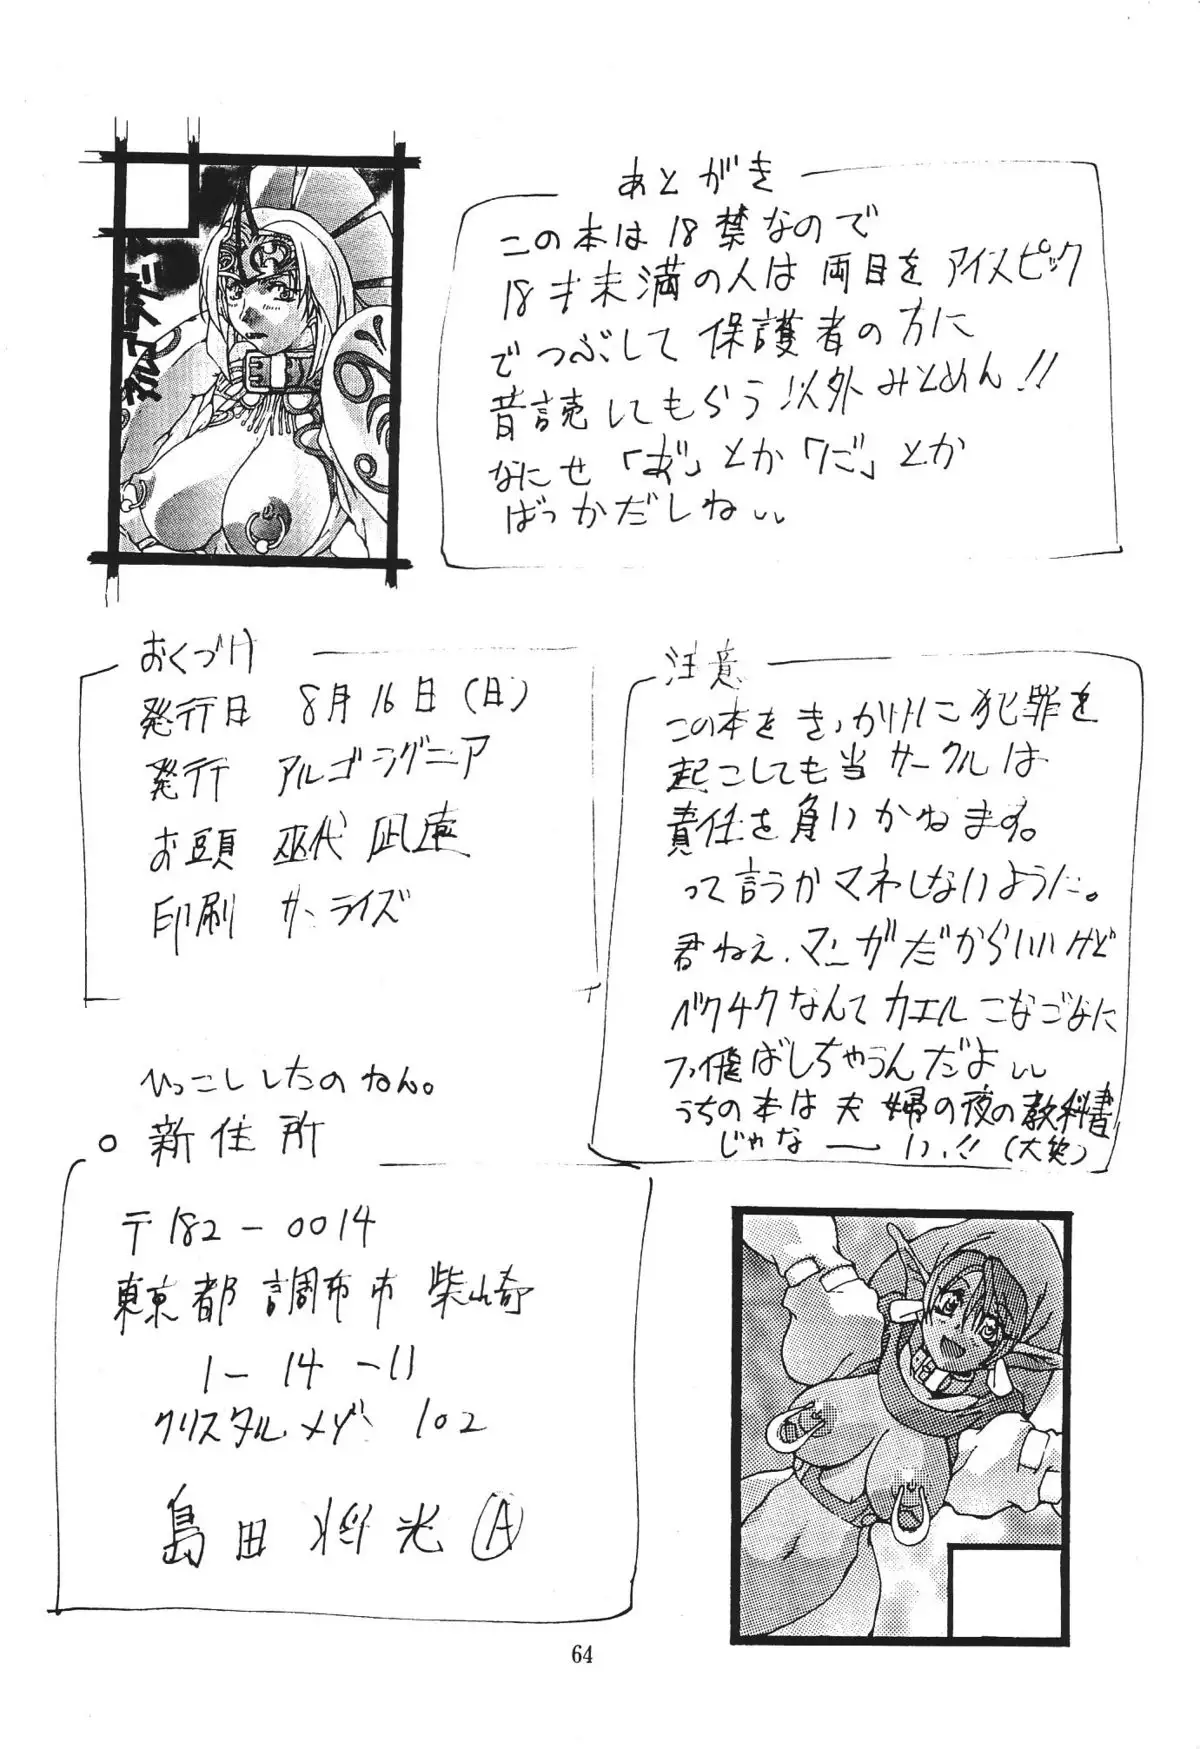 あとがき
この本は18禁なので
18才未満の人は両目をアイスピック
でつぶして保護者の方に
音読してもらう以外みとめん!!
なにせ「あ゛」とか「ご」とか
ばっかだしねぃぃ
おくづけ
発行日 8月16日(日)
発行 アルゴラグニア
お頭 巫代凪遠
印刷 サンライズ
注意
この本をきっかけに犯罪を
起こしても当サークルは
責任を負いかねます。
って言うかマネしないように。
君ねえ、マンガだからいいけど
バクチクなんてカエルこなごなに
フッ飛ばしちゃうんだよぃぃ
うちの本は夫婦の夜の教科書
じゃなーい!!(大笑)
ひっこししたのねん。
○新住所
〒182-0014
東京都調布市柴崎
1-14-11
クリスタルメゾン102
島田将光
64